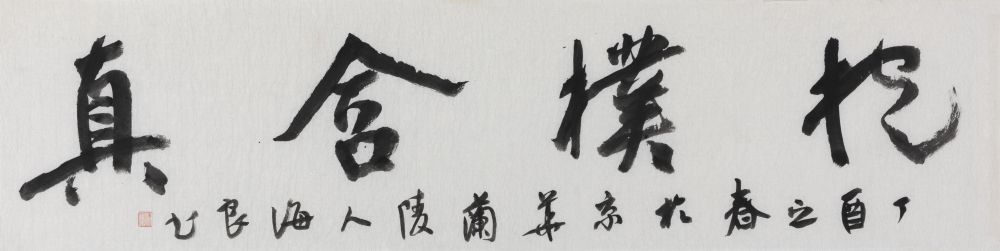 抱樸含真
丁酉之春於京華蘭陵人海良書